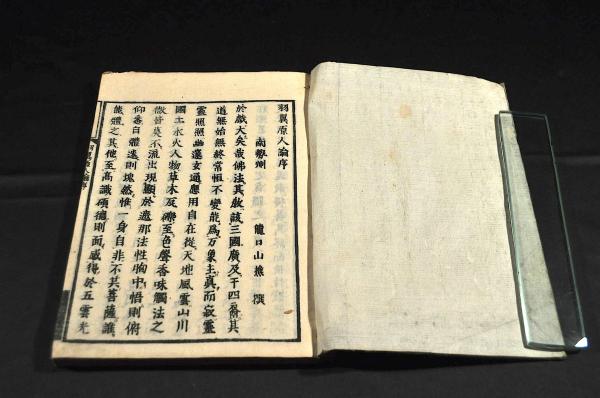 羽翼原人論序
南勢州 龍口山樵 撰
於戲大矣哉佛法其教該三國廣及于四裔其
道無始無終常恒不變能爲万象主真而寂靈
靈照照幽邃玄通應用自在從天地風雲山川
國土水火人物草木瓦礫至色聲香味觸法之
微皆莫不流出現顯於這那法性胸中悟則俯
仰吞自體迷則塊然惟一身自非不其菩薩識
識體之其他至高識碩德則面感得於五雲光
羽翼原人論序